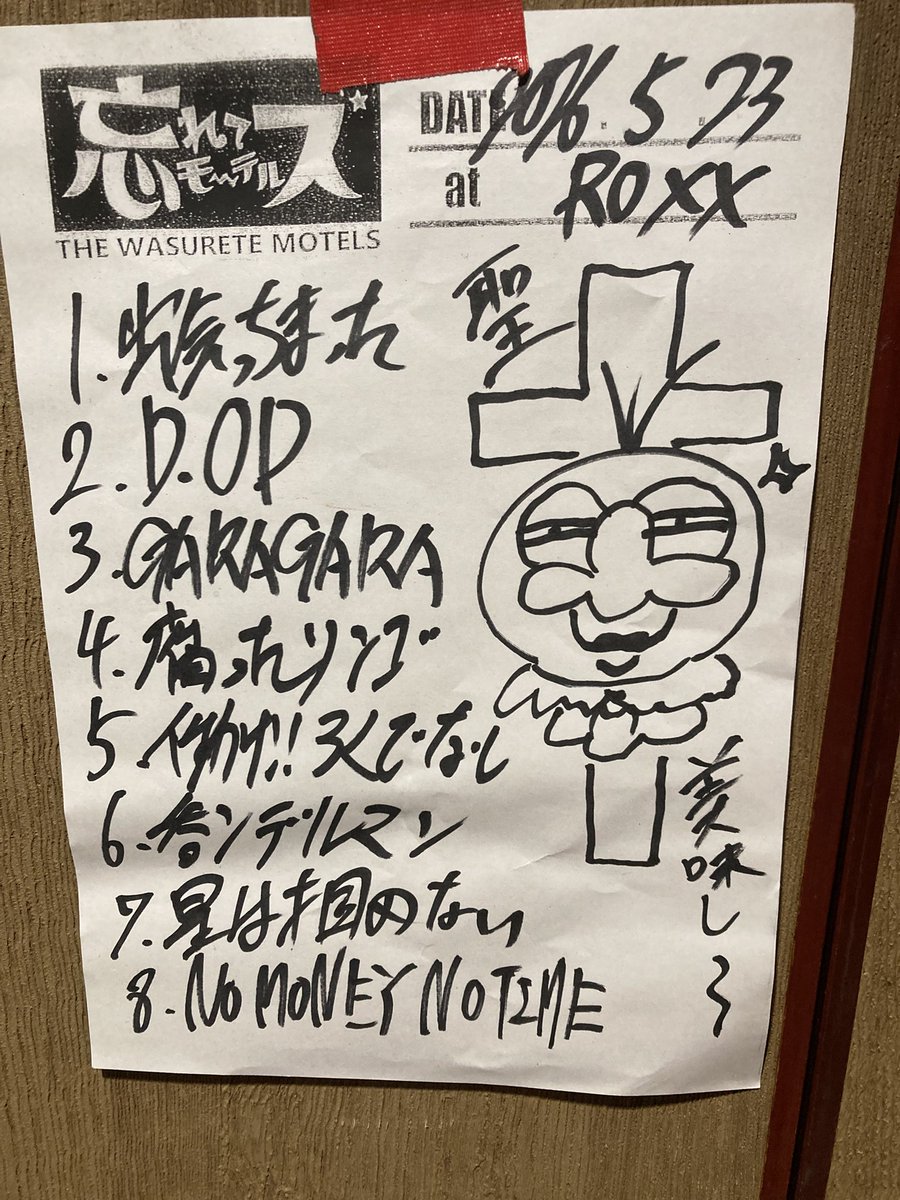 忘れてモーテルズ
THE WASURETE MOTELS
DATE 2026.5.23
at ROXX
1. っちまった
2. D.OD
3. GARAGARA
4. 腐ったリンゴ
5. 働け!! ろくでなし
6. 呑ンデルマン
7. 星は掴めない
8. NO MONEY NO TIME
聖
美味し〜